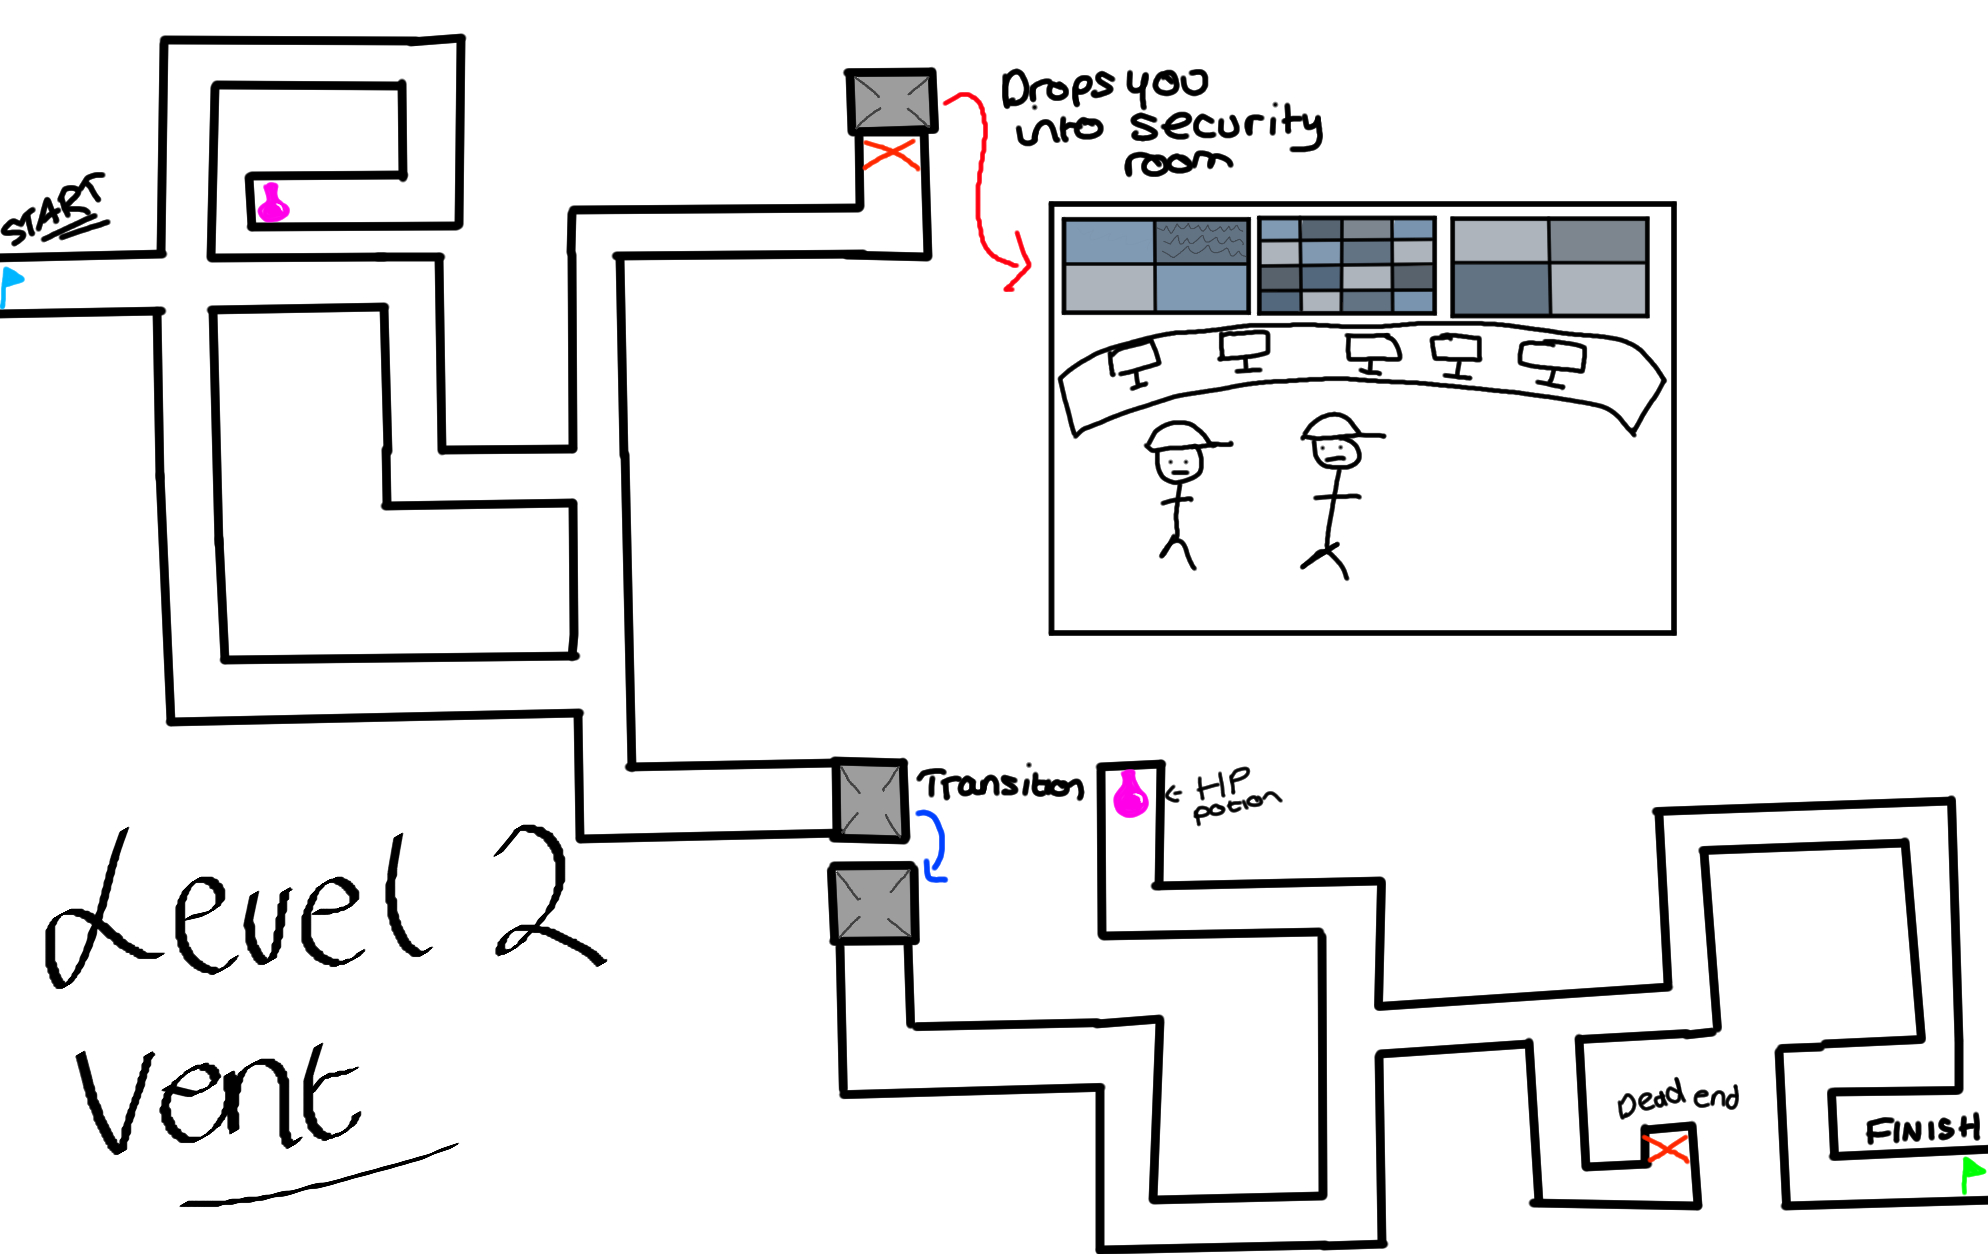 START
Drops you
into security
room
Transition
← HP
potion
Level 2
Vent
Dead end
FINISH